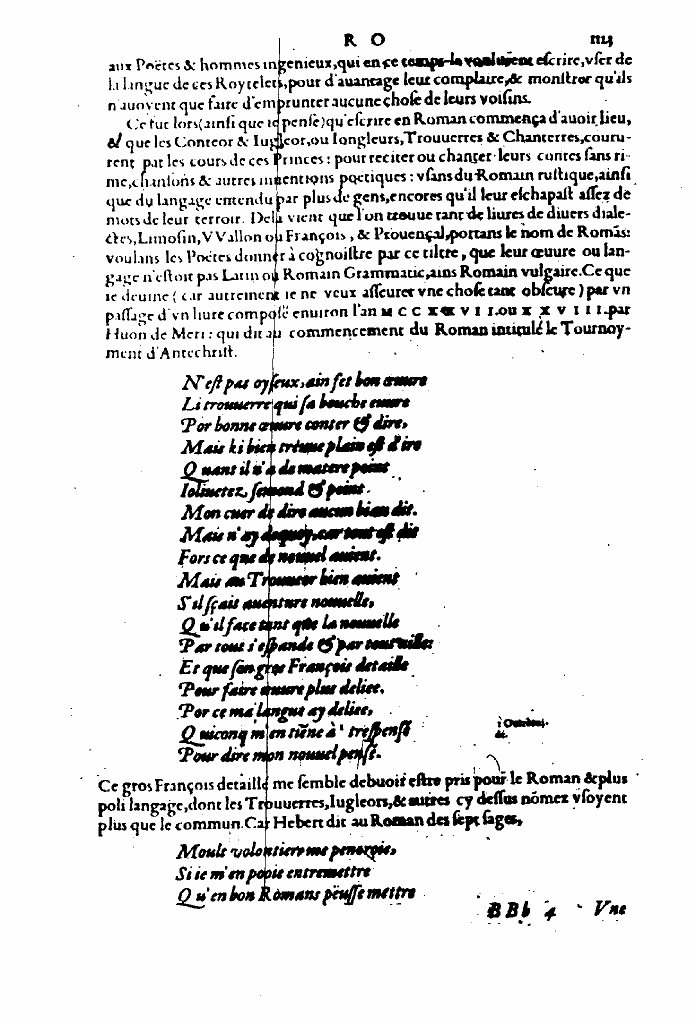 R O
aux Poëtes & hommes ingenieux, qui en ce temps-la vouluient escrire, vser de
la langue de ces Roytelets, pour d'auantage leur complaire, & monstrer qu'ils
n'auoyent que faire d'emprunter aucune chose de leurs voisins.
Ce fut lors (ainsi que ie pense) qu'escrire en Roman commença d'auoir lieu,
& que les Conteor & Iugleor, ou Iongleurs, Trouuerres & Chanterres, couru-
rent par les cours de ces Princes : pour reciter ou chanter leurs contes sans ri-
me, chansons & autres inuentions poëtiques : vsans du Romain rustique, ainsi
que du langage entendu par plus de gens, encores qu'il leur eschapast assez de
mots de leur terroir. Delà vient que l'on trouue tant de liures de diuers diale-
ctes, Limosin, VVallon ou François, & Prouençal, portans le nom de Romãs:
voulans les Poëtes donner à cognoistre par ce tiltre, que leur œuure ou lan-
gage n'estoit pas Latin ou Romain Grammatic, ains Romain vulgaire. Ce que
ie deuine ( car autrement ie ne veux asseurer vne chose tant obscure ) par vn
passage d'vn liure composé enuiron l'an M C C X X V I I. ou X X V I I I. par
Huon de Meri : qui dit au commencement du Roman intitulé le Tournoy-
ment d'Antechrist.
N'est pas oyseux, ain set bon œuure
Li trouuerre qui sa bouche euure
Por bonne œuure conter & dire,
Mais ki bien treuue plain est d'ire
Quant il n'a de matere point
Ioliuetez, semond & point.
Mon cuer de dire aucun bien dit.
Mais n'ay dequoy, car tout est dit
Fors ce que de nouuel auient.
Mais au Trouueor bien auient
S'il sçait auenture nouuelle,
Qu'il face tant que la nouuelle
Par tout s'espande & par tout aille:
Et que son gros François detaille
Pour faire œuure plus deliee.
Por ce ma langue ay deliee,
Quiconq m'en tiẽne à trespensé
Pour dire mon nouuel pensé.
Ce gros François detaillé me semble debuoir estre pris pour le Roman & plus
poli langage, dont les Trouuerres, Iugleors, & autres cy dessus nõmez vsoyent
plus que le commun. Car Hebert dit au Roman des sept sages,
Moult volontiers me penerois,
Si ie m'en pooie entremettre
Qu'en bon Romans peusse mettre
B B b 4 Vne